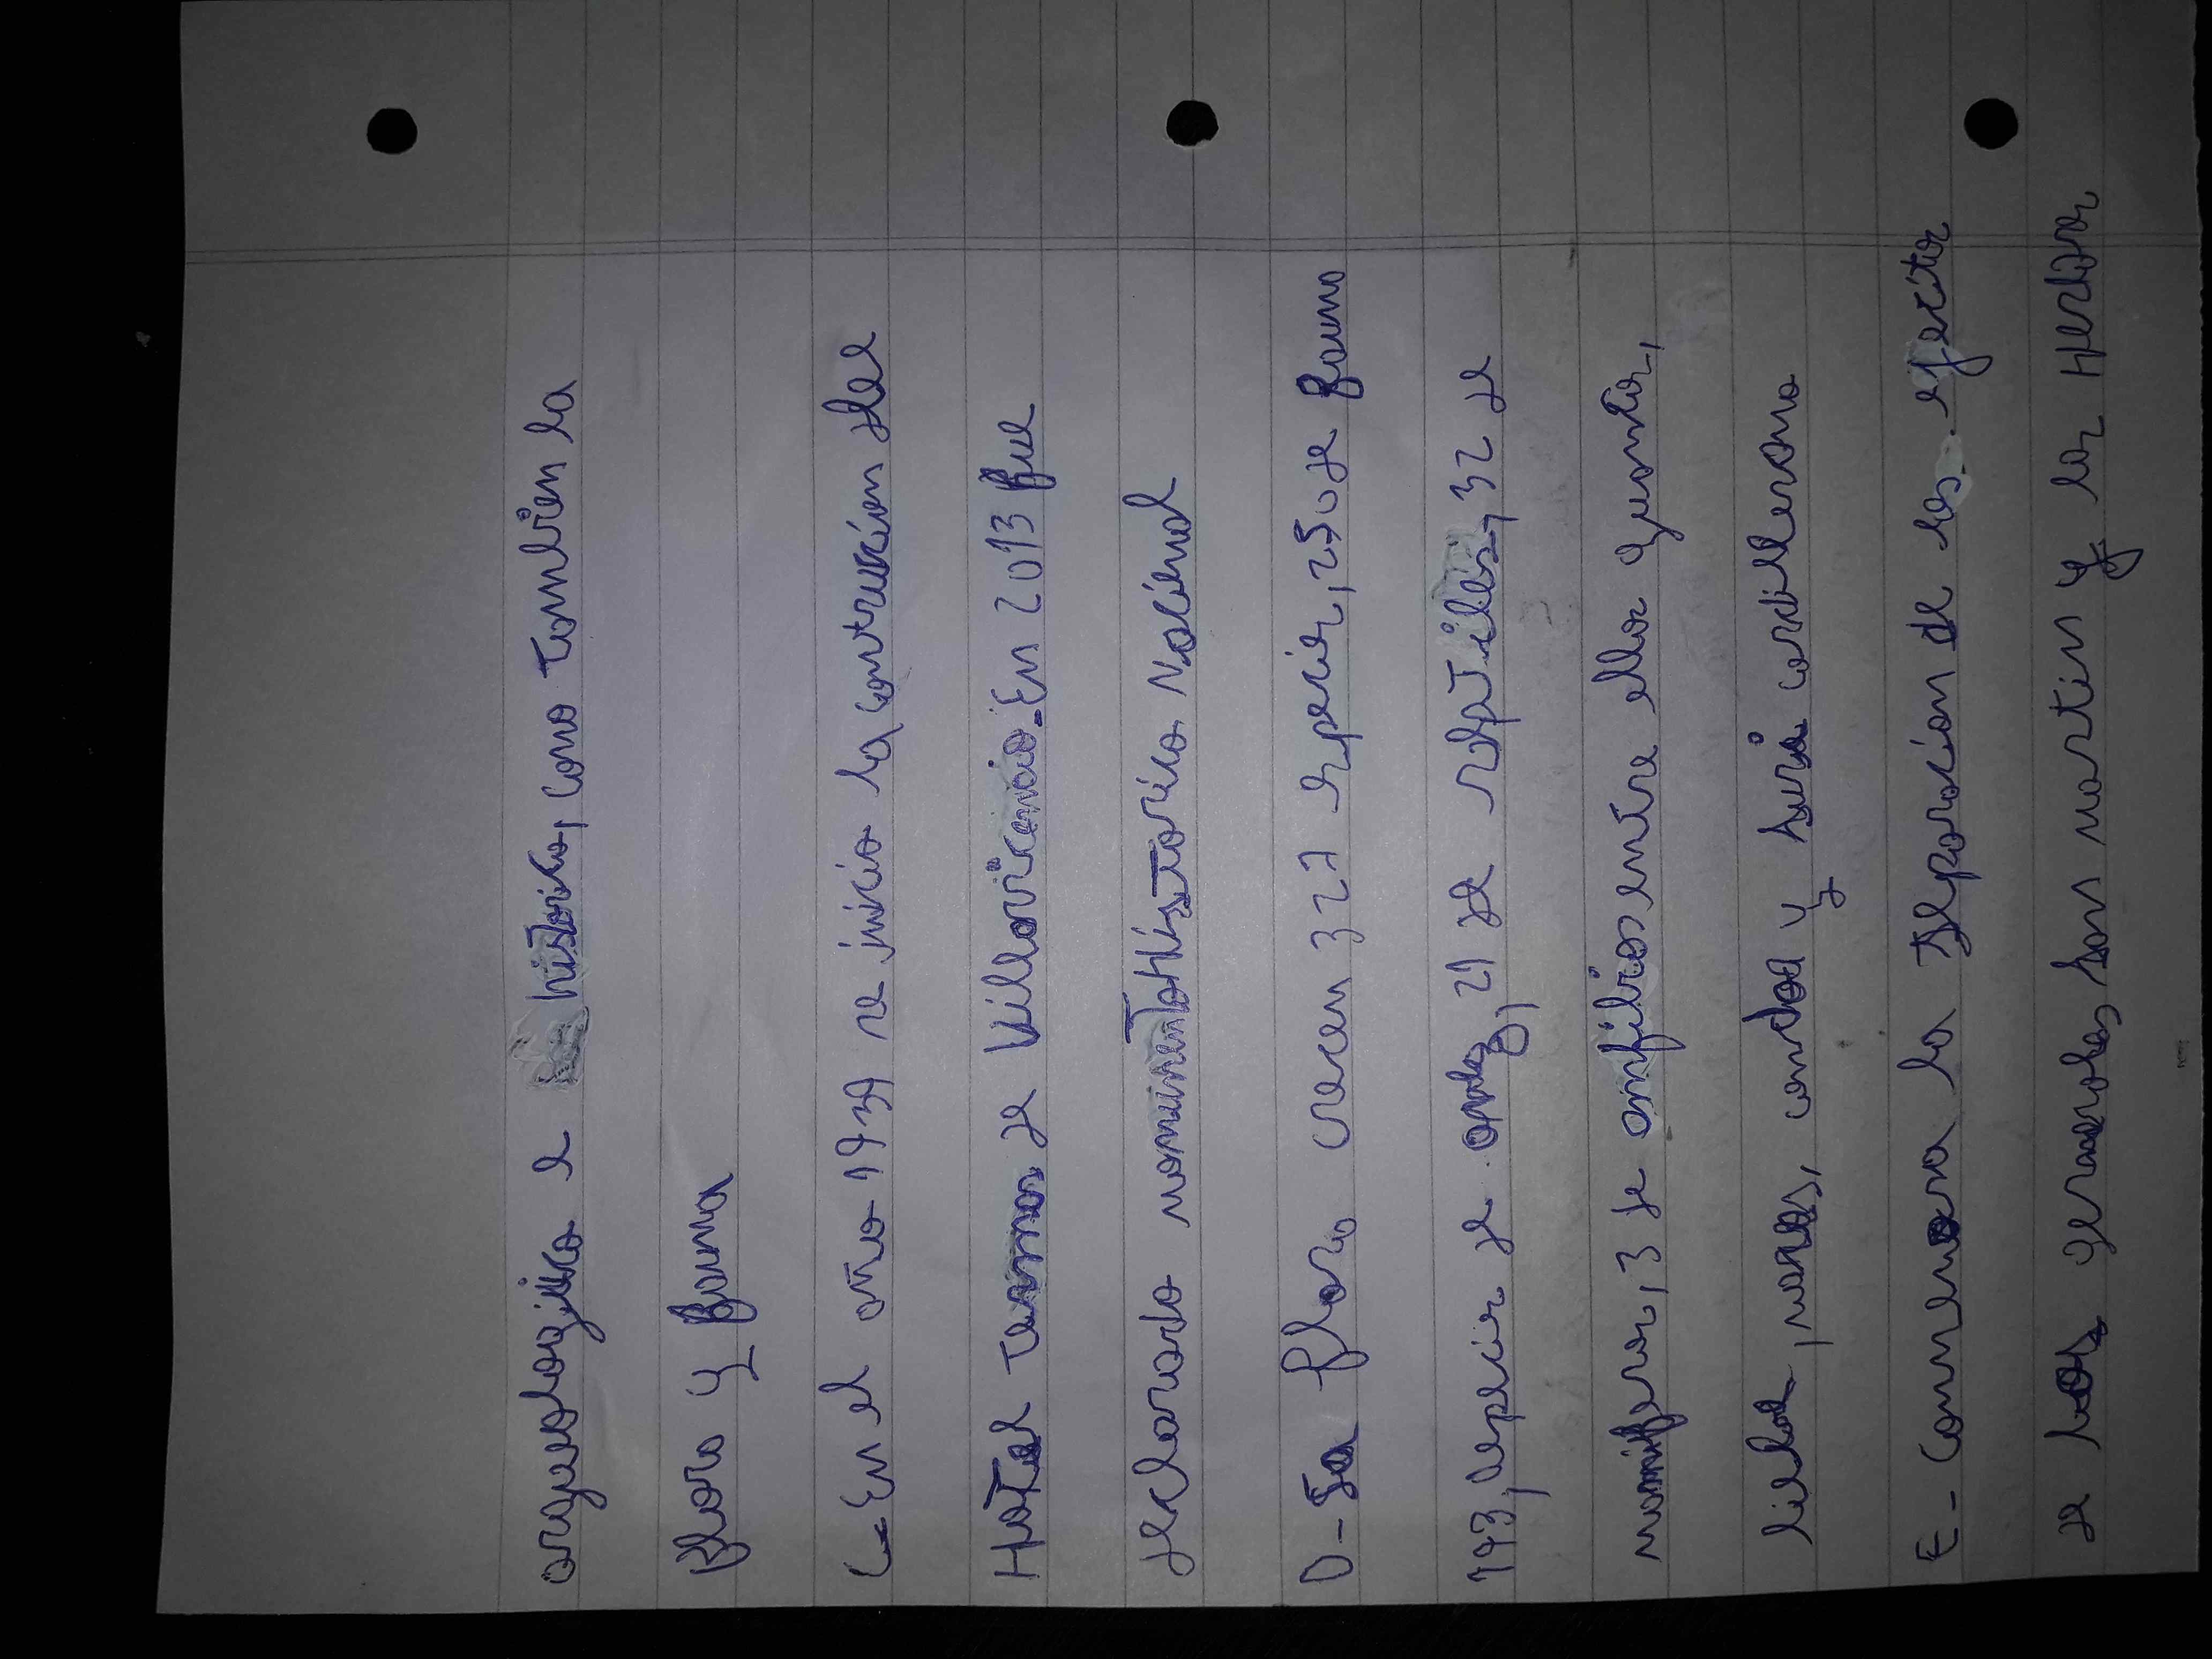 arqueologica e historica, como tambien la
flora y fauna
C-En el año 1939 se inicio la contrucion del
Hotel termas de Villavicencio. En 2013 fue
declarado monumento Historico Nacional
D-La flora crecen 327 especies, 250 de fauna
193, especies de aves, 21 de reptiles, 32 de
mamiferos, 3 de anfibios entre ellos guanacos,
maras, condor y cordillerano
E- Conmemora la separacion de los ejercitos
de los generales San martin y las Heras